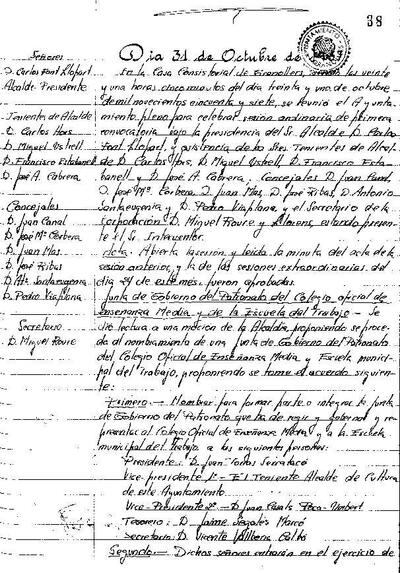 38
Señores
D. Carlos Font Llopart
Alcalde-Presidente
Teniente de Alcalde
D. Carlos Hors
D. Miguel Ustrell
D. Francisco Estabanell
D. José A. Cabrera
Concejales
D. Juan Canal
D. José Mª Corbera
D. Juan Mas
D. José Ribas
D. Atº Santaeugenia
D. Pedro Viaplana
Secretario
D. Miguel Roure
Dia 31 de Octubre de
En la Casa Consistorial de Granollers, siendo las veinte
y una horas cinco minutos del dia treinta y uno de octubre
de mil novecientos cincuenta y siete, se reunió el Ayunta-
miento pleno para celebrar sesión ordinaria de primera
convocatoria bajo la presidencia del Sr. Alcalde D. Carlos
Font Llopart, y asistencia de los Sres. Tenientes de Alcal-
de D. Carlos Hors, D. Miguel Ustrell, D. Francisco Esta-
banell y D. José A. Cabrera, Concejales D. Juan Canal,
D. José Mª Corbera, D. Juan Mas, D. José Ribas, D. Antonio
Santaeugenia y D. Pedro Viaplana, y el Secretario de la
Corporación D. Miguel Roure y Llorens, estando presen-
te el Sr. Interventor.
Acta. Abierta la sesión y leida la minuta del acta de la
sesión anterior, y la de las sesiones extraordinarias del
dia 24 de este mes, fueron aprobadas.
Junta de Gobierno del Patronato del Colegio oficial de
Enseñanza Media y de la Escuela del Trabajo - Se
dió lectura a una moción de la Alcaldia, proponiendo se proce-
da al nombramiento de una Junta de Gobierno del Patronato
del Colegio Oficial de Enseñanza Media y Escuela munici-
pal del Trabajo, proponiendo se tome el acuerdo siguien-
te:
Primero.- Nombrar para formar parte o integrar la Junta
de Gobierno del Patronato que ha de regir y gobernar y re-
presentar al Colegio Oficial de Enseñanza Media y a la Escuela
municipal del Trabajo a los siguientes personas:
Presidente: D. Juan Torras Serratacó
Vice-presidente 1º- El Teniente Alcalde de Cultura
de este Ayuntamiento
Vice-Presidente 2º- D. Juan Casals
Tesorero: D. Jaime Segalés Marcó
Secretario: D. Vicente
Segundo - Dichos señores entrarán en el ejercicio de